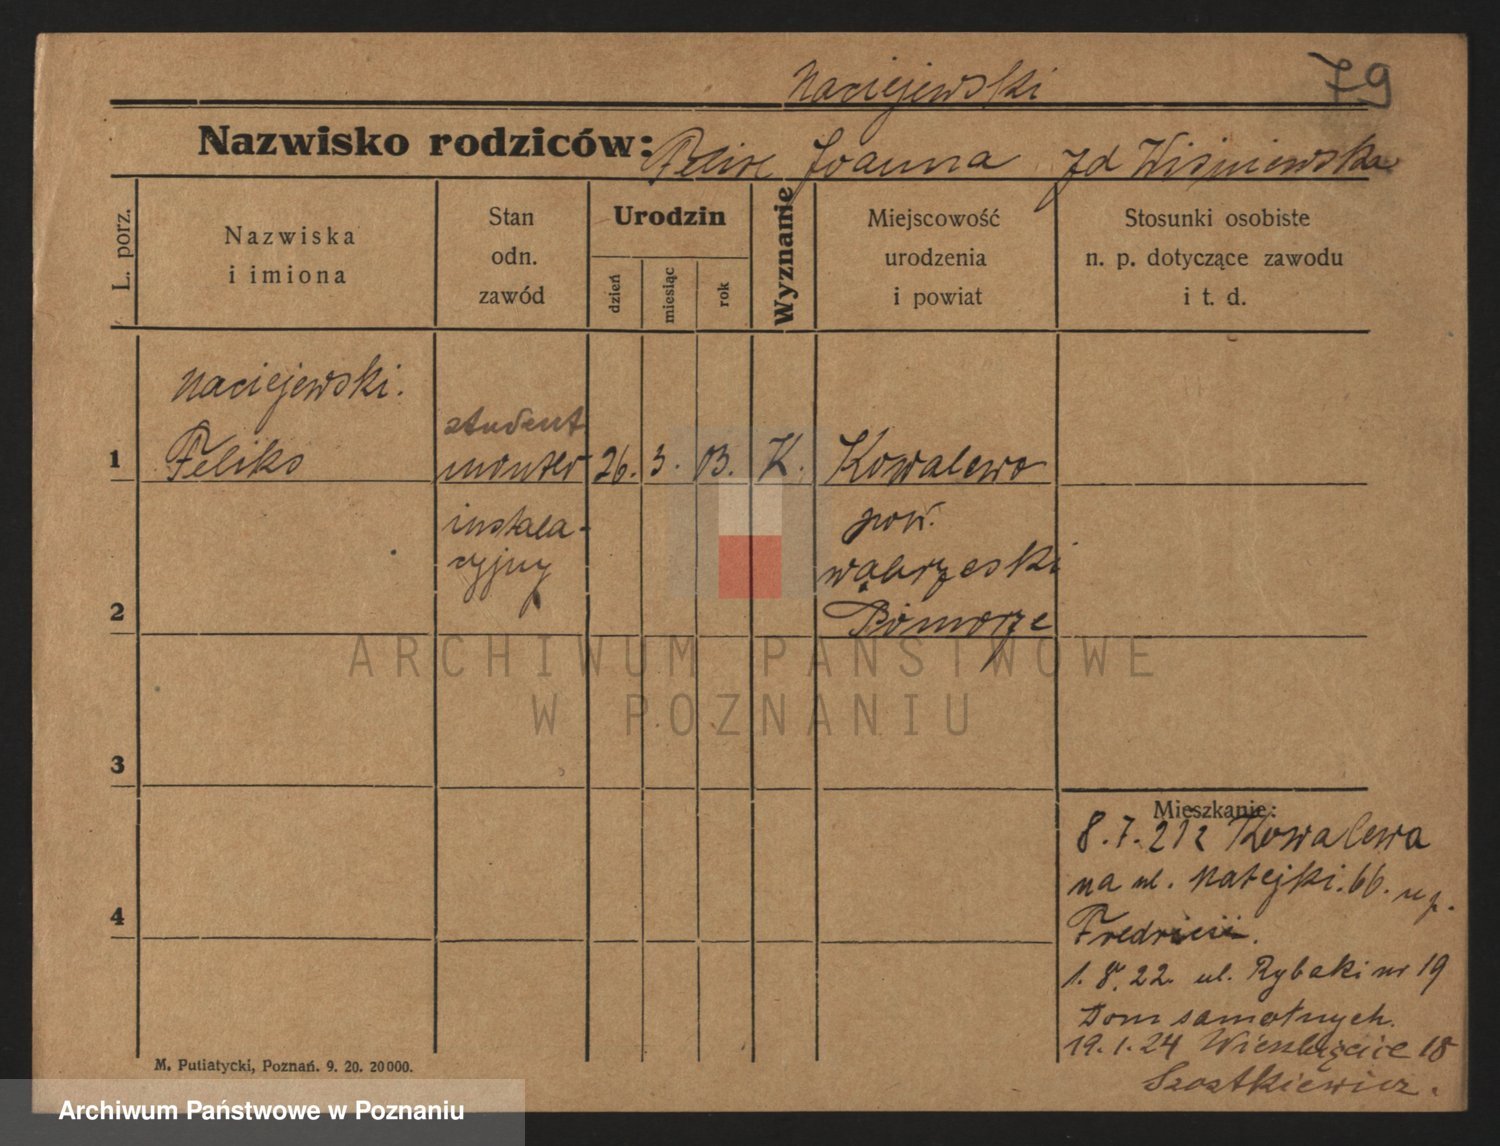 Maciejewski 79
Nazwisko rodziców: Felix Joanna zd Wiśniewska
L. porz.
Nazwiska
i imiona
Stan
odn.
zawód
Urodzin
dzień
miesiąc
rok
Wyznanie
Miejscowość
urodzenia
i powiat
Stosunki osobiste
n. p. dotyczące zawodu
i t. d.
Maciejewski.
1 Feliks
student
monter
instala-
cyjny
26. 3. 03. K.
Kowalewo
pow.
wąbrzeski
Pomorze
2
3
4
Mieszkanie:
8.7.21 z Kowalewa
na ul. Matejki. 66. u p.
1. 8. 22. ul. Rybaki nr 19
Dom samotnych.
19.1.24 Wierzbięcice 18
Szostkiewicz.
M. Putiatycki, Poznań. 9. 20. 20000.
ARCHIWUM PAŃSTWOWE
W POZNANIU
Archiwum Państwowe w Poznaniu